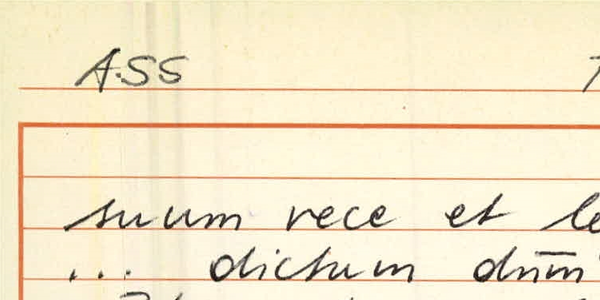 ASS
suum rece et le
... dictum dnm̄